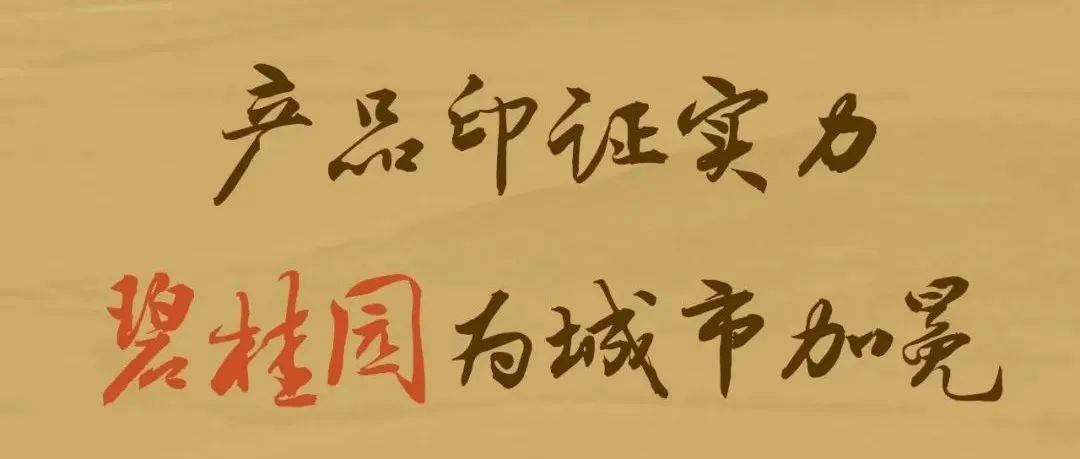 产品印证实力
碧桂园为城市加冕